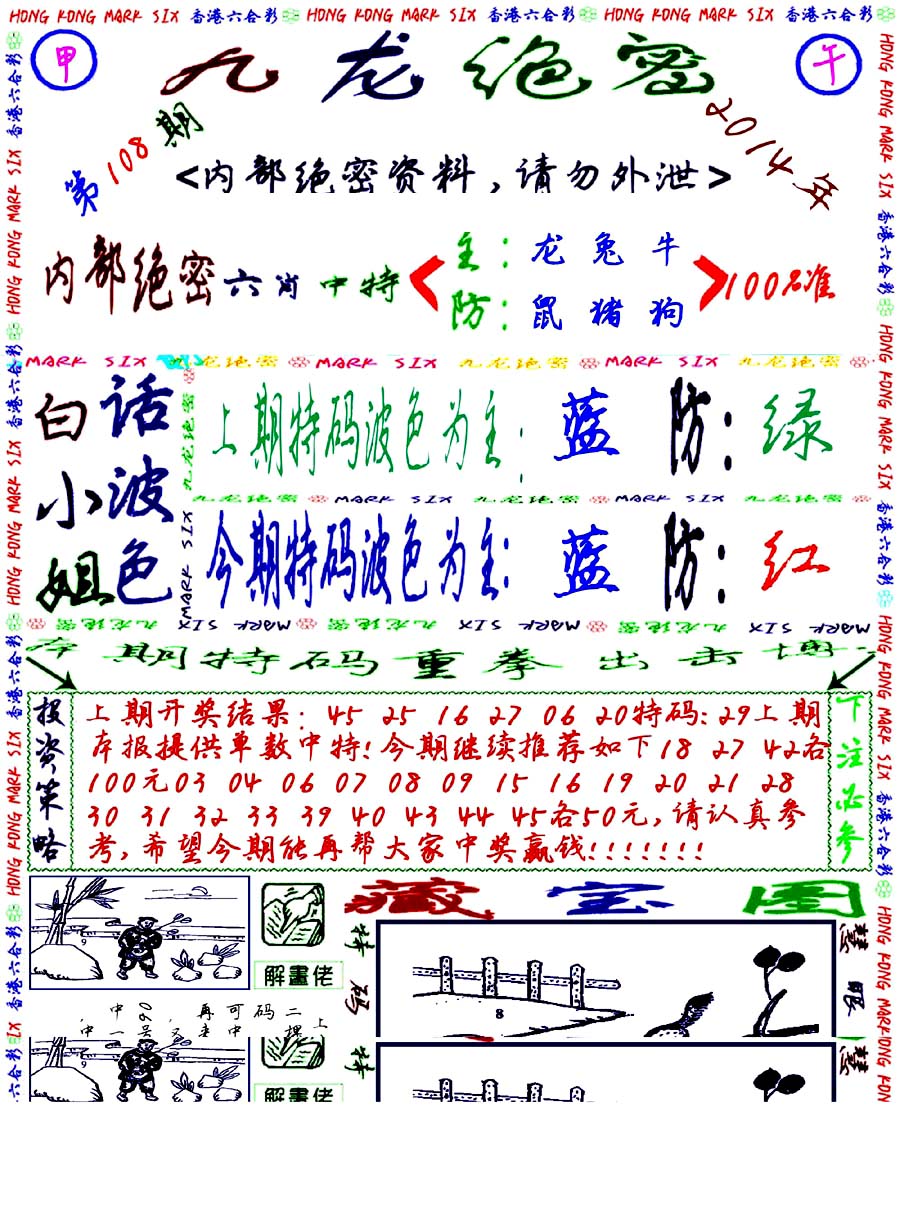 HONG KONG MARK SIX 香港六合彩 HONG KONG MARK SIX 香港六合彩 HONG KONG MARK SIX 香港六合彩
甲 九龙绝密 午
第108期 2014年
<内部绝密资料,请勿外泄>
内部绝密六肖中特
主:龙兔牛
防:鼠猪狗
100%准
MARK SIX 九龙绝密 MARK SIX 九龙绝密 MARK SIX 九龙绝密
白小姐
话波色
上期特码波色为主:蓝 防:绿
九龙绝密 MARK SIX 九龙绝密 MARK SIX 九龙绝密
今期特码波色为主:蓝 防:红
九龙绝密 MARK SIX 九龙绝密 MARK SIX 九龙绝密 MARK SIX
本期特码重拳出击
投资策略
上期开奖结果:45 25 16 27 06 20特码:29上期
本报提供单数中特!今期继续推荐如下18 27 42各
100元03 04 06 07 08 09 15 16 19 20 21 28
30 31 32 33 39 40 43 44 45各50元,请认真参
考,希望今期能再帮大家中奖赢钱!!!!!!!
下注必参
藏宝图
解畫佬
特码
慧眼
9
8
中90再可码二
中一号又来中
特
慧
9
解畫佬